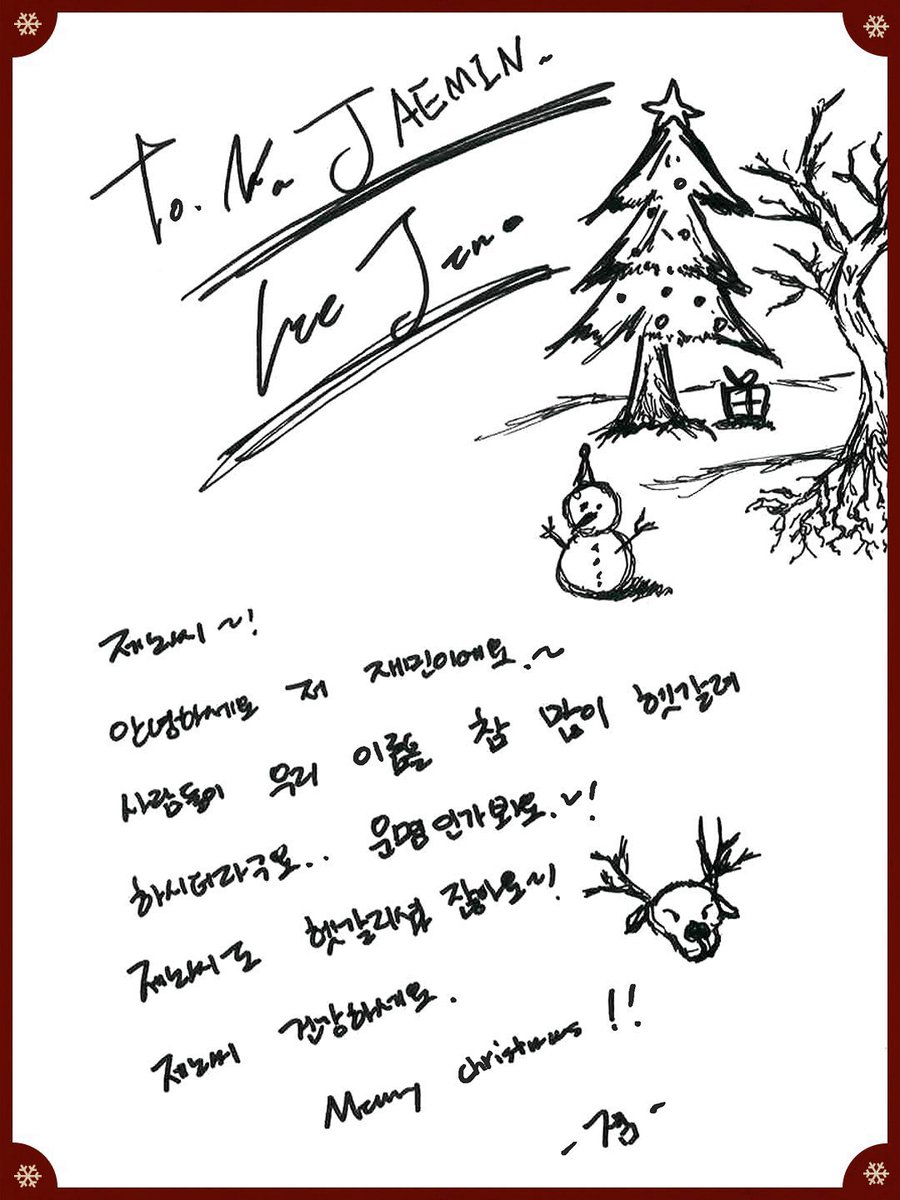 To. Na JAEMIN~
Lee Jeno
제노씨~!
안녕하세요 저 재민이에요.~
사람들이 우리 이름을 참 많이 헷갈려
하시더라구요.. 운명인가봐요.~!
제노씨도 헷갈리셨잖아요~!
제노씨 건강하세요.
Merry christmas!!